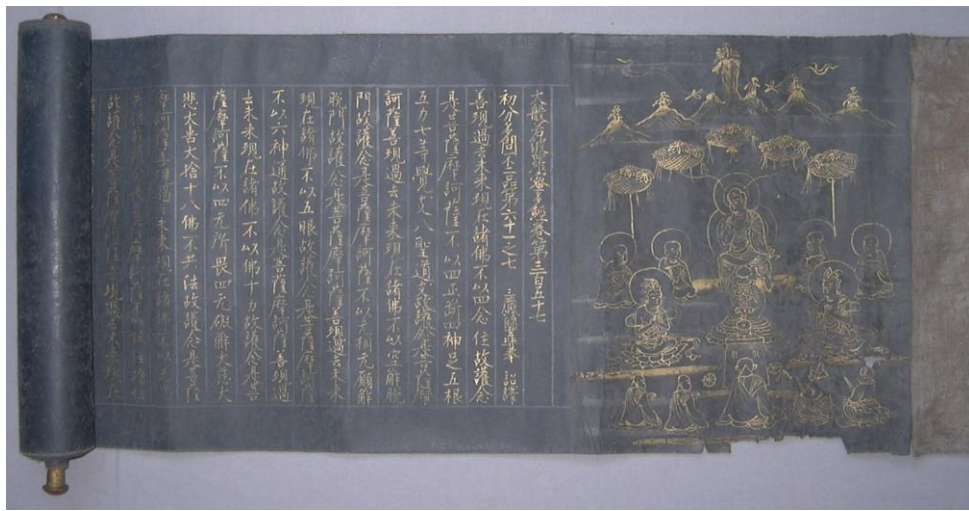 大般若波羅蜜多經卷第三百五十七
初分多問不二品第六十一之七　三藏法師玄奘　詔譯
善現過去未來現在諸佛不以四念住故護念
是菩薩摩訶薩不以四正斷四神足五根
五力七等覺支八聖道支故護念是菩薩摩
訶薩善現過去未來現在諸佛不以空解脫
門故護念是菩薩摩訶薩不以无相无願解
脫門故護念是菩薩摩訶薩善現過去未來
現在諸佛不以五眼故護念是菩薩摩訶薩
不以六神通故護念是菩薩摩訶薩善現過
去未來現在諸佛不以佛十力故護念是菩
薩摩訶薩不以四无所畏四无礙解大慈大
悲大喜大捨十八佛不共法故護念是菩薩
摩訶薩善現過去未來現在諸佛不以无
故護念是菩薩摩訶薩